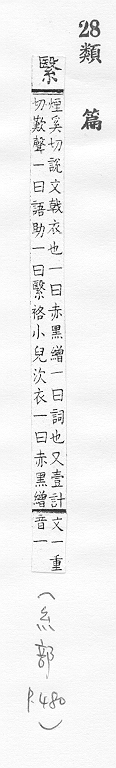 28 類篇
繄
煙奚切說文戟衣也一曰赤黑繒一曰詞也又壹計
切歎聲一曰語助一曰繄袼小兒次衣一曰赤黑繒
文一重
音一
(糸部 P.480)